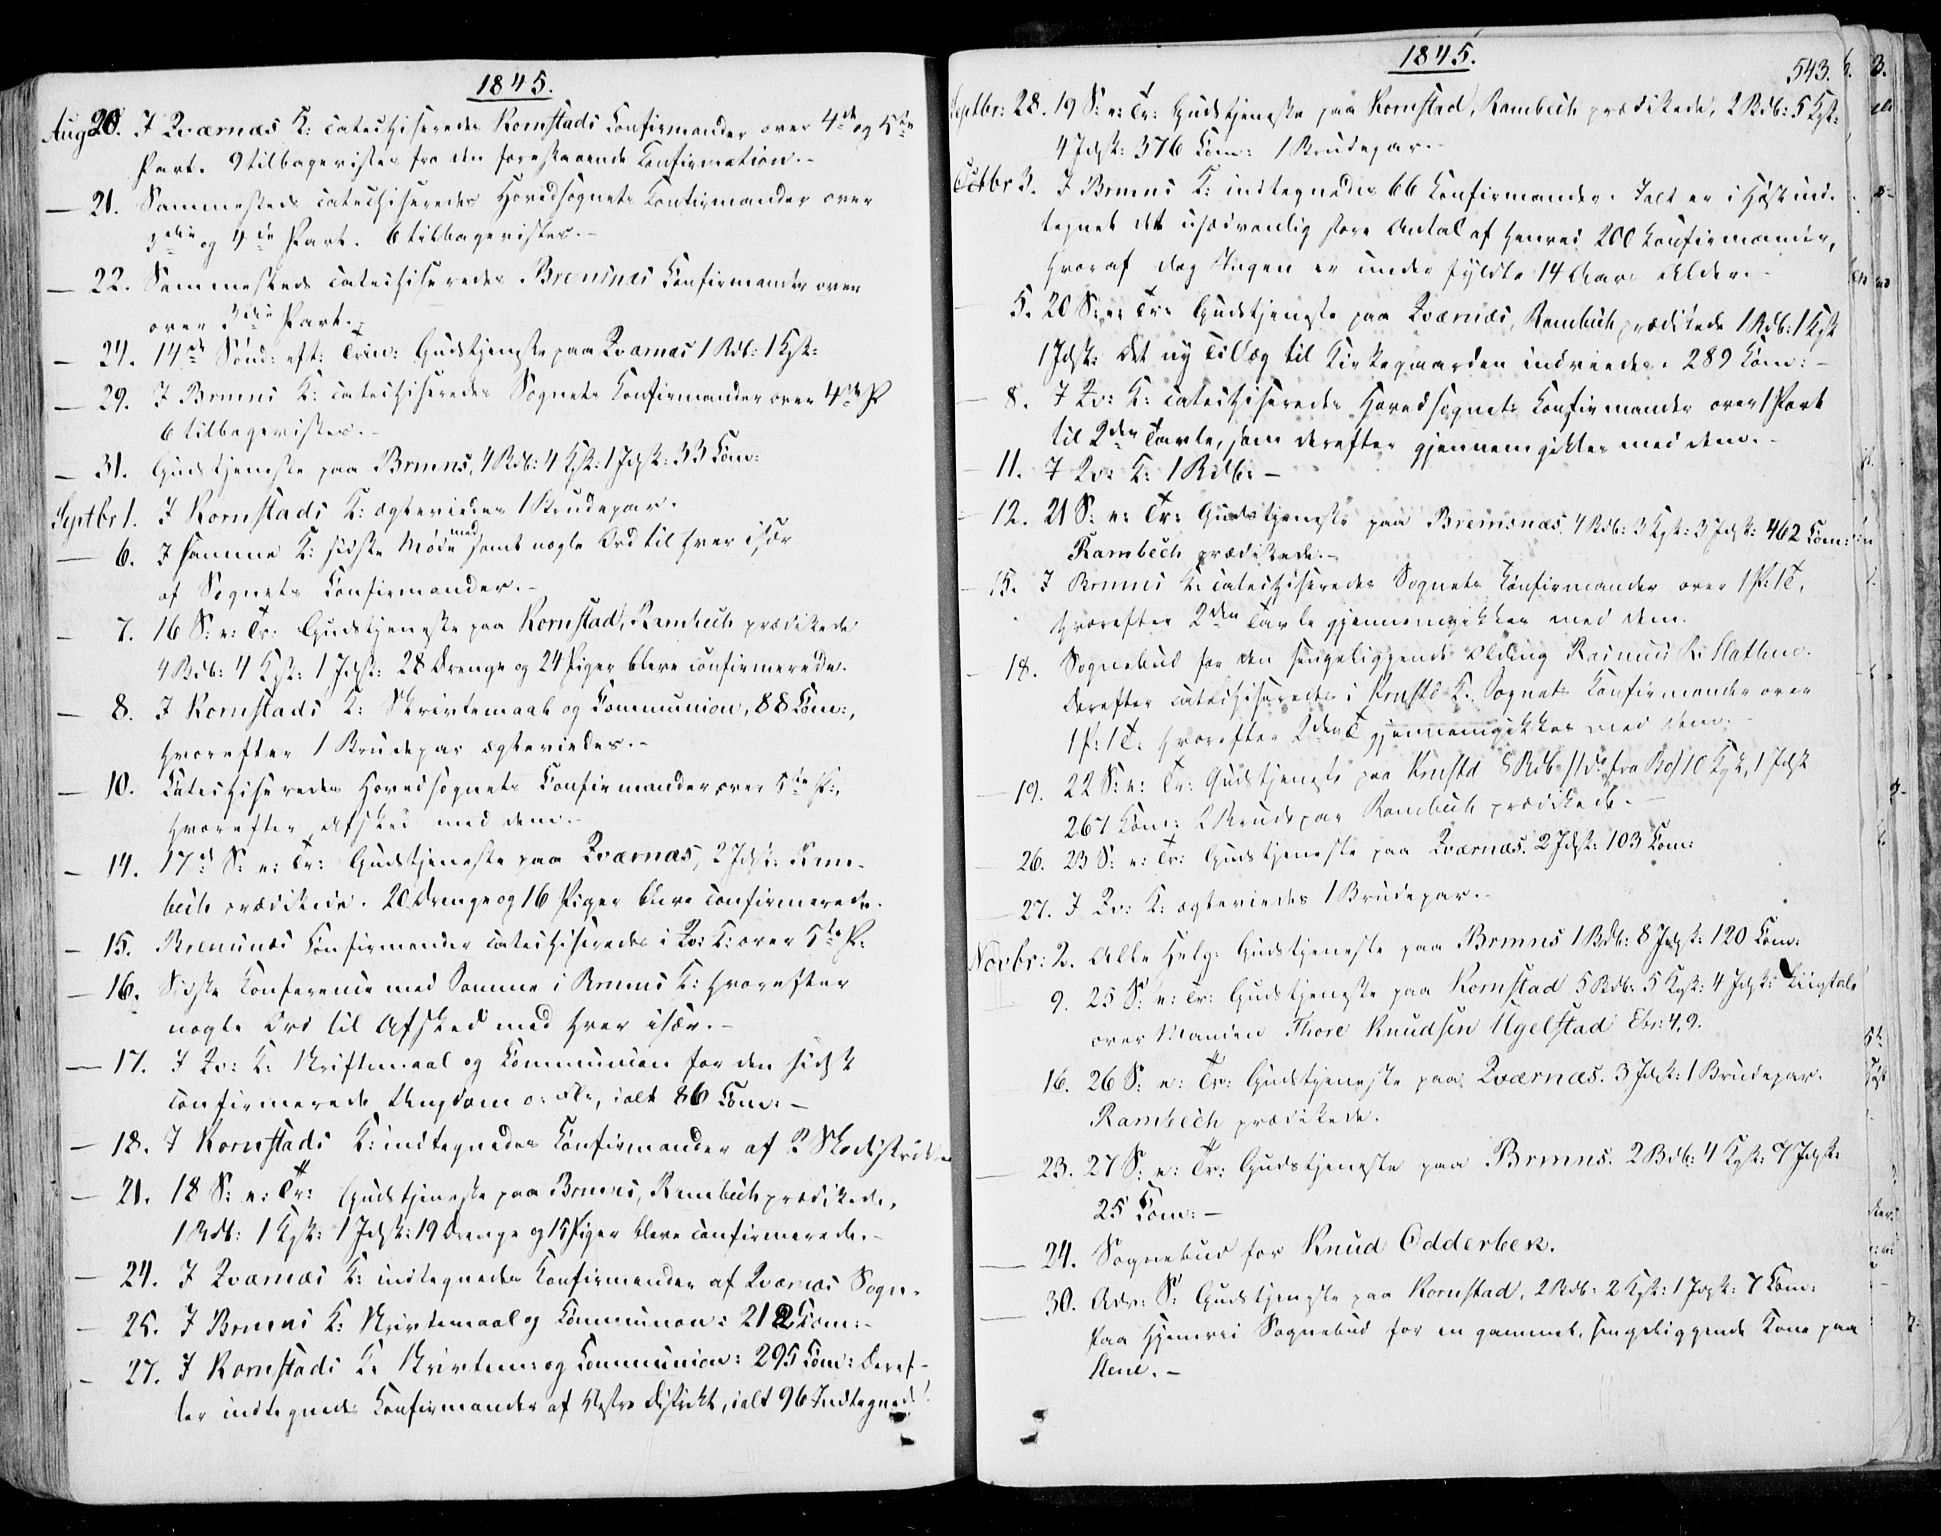 1845.
Aug 20. I Qværnæs K: catechiseredes Kornstads Confirmander over 4de og 5te
Part. 9 tilbagevistes fra den forestaaende Confirmation.-
- 21. Sammesteds catechiseredes Hovedsognets Confirmander over
3die og 4de Part. 6 tilbagevistes.-
- 22. Sammesteds catechiseredes Bremsnæs Confirmander over
over 3die Part.-
- 24. 14de Sønd: eft: Trin: Gudstjeneste paa Qværnæs 1 Rdb: 1 Kgk:
- 29. I Brmns K: catechiseredes Sognets Confirmander over 4de P
6 tilbagevistes.-
- 31. Gudstjeneste paa Brmns, 4 Rdb: 4 Kgk: 1 Jdsk: 33 Com:
Septbr 1. I Kornstads K: ægteviedes 1 Brudepar.
- 6. I samme K: sidste Møde med samt nogle Ord til hver især
af Sognets Confirmander.-
- 7. 16 S: e: Tr: Gudstjeneste paa Kornstad, Rambech prædikede
4 Rdb: 4 Kgk: 1 Jdsk: 28 Drenge og 24 Piger bleve confirmerede.
- 8. I Kornstads K: Skriftemaal og Communion, 88 Com:,
hvorefter 1 Brudepar ægteviedes.-
- 10. Catechiseredes Hovedsognets Confirmander over 5te P:,
hvorefter Afsked med dem.-
- 14. 17de S: e: Tr: Gudstjeneste paa Qværnæs, 2 Jdsk: Ram-
bech prædikede. 20 Drenge og 16 Piger bleve confirmerede.
- 15. Bremsnæs Confirmander catechiseredes i Qv: K: over 5te P:
- 16. Sidste Conference med Samme i Brmns K: hvorefter
nogle Ord til Afsked med hver især.-
- 17. I Qv: K: Skriftemaal og Communion for den sidst
confirmerede Ungdom o: Fl:, ialt 86 Com:-
- 18. I Kornstads K: indtegnedes Confirmander af 2 Skoledistrikter
- 21. 18 S: e: Tr: Gudstjeneste paa Brmns, Rambech prædikede,
1 Rdb: 1 Kgk: 1 Jdsk: 19 Drenge og 15 Piger bleve confirmerede.-
- 24. I Qværnæs K: indtegnedes Confirmander af Qværnæs Sogn.
- 25. I Brmns K: Skriftemaal og Communion: 212 Com:-
- 27. I Kornstads K. Skriftem: og Communion: 295 Com: Deref-
ter indtegnedes Confirmander af Vestre Distrikt, ialt 96 Indtegnede!
1845.
543.
Septbr: 28. 19 S: e: Tr: Gudstjeneste paa Kornstad, Rambech prædikede, 2 Rdb: 5 Kgk:
4 Jdsk: 376 Com: 1 Brudepar.-
Octbr 3. I Brmns K: indtegnedes 66 Confirmander. Ialt er i Høst ind-
tegnet det usædvanlig store Antal af henved 200 Confirmander,
hvoraf dog Ingen er under fyldte 14 Aars Alder.-
5. 20 S: e: Tr: Gudstjeneste paa Qværnæs, Rambech prædikede 1 Rdb: 1 Kgk
1 Jdsk: Det ny Tillæg til Kirkegaarden indviedes. 289 Com:-
8. I Qv: K: catechiseredes Hovedsognets Confirmander over 1 Part
til 2den Tavle, som derefter gjennemgikkes med dem.-
- 11. I Qv: K: 1 Rdb:-
- 12. 21 S: e: Tr: Gudstjeneste paa Bremsnæs. 4 Rdb: 3 Kgk: 3 Jdsk: 462 Com:
Rambech prædikede.-
- 15. I Brmns K: catechiseredes Sognets Confirmander over 1 P: 1 T,
hvorefter 2den Tavle gjennemgikkes med dem.
- 18. Sognebud for den sengeliggende Olding Rasmus R. Slatlem.
Derefter catechiseredes i Krnstd K. Sognets Confirmander over
1 P: 1 T: hvorefter 2den T gjennemgikkes med dem.
- 19. 22 S: e: Tr: Gudstjeneste paa Krnstd 8 Rdb 10 Kgk, 1 Jdsk
267 Com: 2 Brudepar Rambech prædikede.-
26. 23 S: e: Tr: Gudstjeneste paa Qværnæs. 2 Jdsk: 103 Com:
27. I Qv: K: ægteviedes 1 Brudepar.-
Novbr: 2. Alle Helg: Gudstjeneste paa Brmns 1 Rdb: 8 Jdsk: 120 Com:
9. 25 S: e: Tr: Gudstjeneste paa Kornstad 5 Rdb: 5 Kgk: 4 Jdsk: Liigtale
over Manden Thore Knudsen Ugelstad Ebr: 4, 9.
16. 26 S: e: Tr: Gudstjeneste paa Qværnæs. 3 Jdsk: 1 Brudepar.
Rambech prædikede.
23. 27 S: e: Tr: Gudstjeneste paa Brmns. 2 Rdb: 4 Kgk: 7 Jdsk:
25 Com:-
24. Sognebud for Knud Odderbek.
30. Adv: S: Gudstjeneste paa Kornstad, 2 Rdb: 2 Kgk: 1 Jdsk: 7 Com:
Paa Hjemvei Sognebud for en gammel, sengeliggende Kone paa
Stene.-